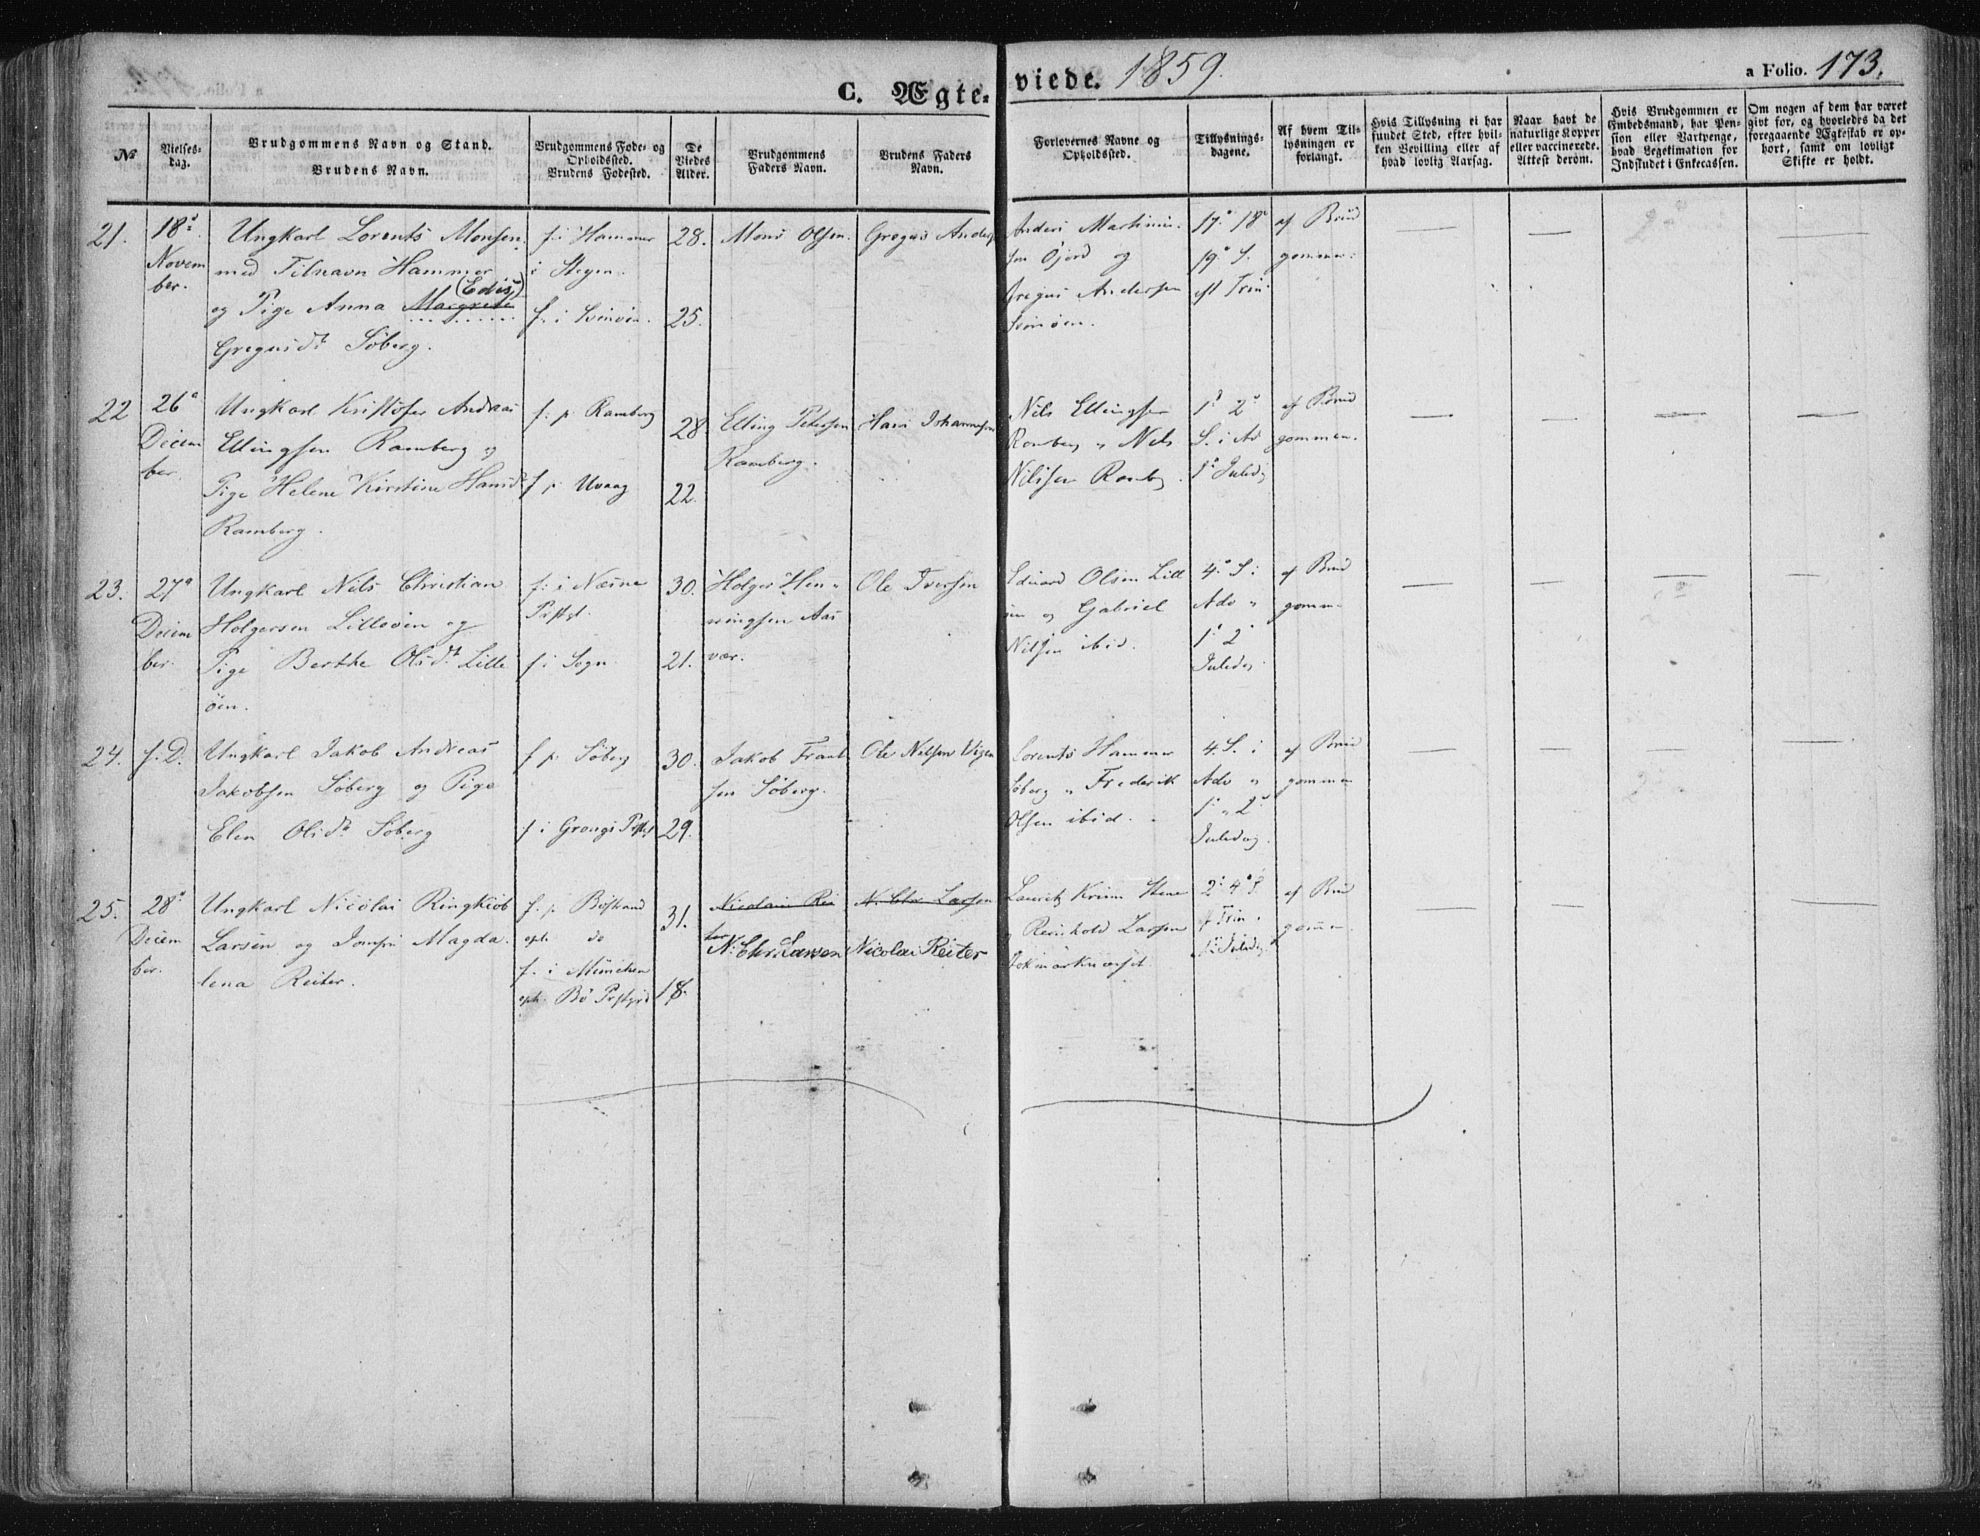 C. Ægteviede. 1859. a Folio. 173.
№
Vielsesdag.
Brudgommens Navn og Stand.
Brudens Navn.
Brudgommens Føde- og
Opholdssted.
Brudens Fødested.
De
Viedes
Alder.
Brudgommens
Faders Navn.
Brudens Faders
Navn.
Forlovernes Navne og
Opholdssted.
Tillysnings-
dagene.
Af hvem Til-
lysningen er
forlangt.
Hvis Tillysning ei har
fundet Sted, efter hvil-
ken Bevilling eller af
hvad lovlig Aarsag.
Naar havt de
naturlige Kopper
eller vaccinerede.
Attest derom.
Hvis Brudgommen er
Embedsmand, har Pen-
sion eller Vartpenge,
hvad Legetimation for
Indskudet i Enkecassen.
Om nogen af dem har været
givt før, og hvorledes da det
foregaaende Ægteskab er op-
hørt, samt om lovligt
Skifte er holdt.
21.
18de
Novem
ber.
Ungkarl Lorents Monsen
med Tilnavn Hammer
(Edis)
og Pige Anna Margrete
Gregusdt Søberg.
f. i Hammer
i Stegen.
f. i Svinöen.
28.
25.
Mons Olsen.
Gregus Anders
Anders Martinus
sen Öjord og
Gregus Andersen
Svinöen.
17. 18
19. S.
eft Trin
af Brud
gommen.
22
26
Decem
ber.
Ungkarl Kristofer Andreas
Ellingsen Ramberg og
Pige Helene Kirstine Hansdt
Ramberg.
f. p. Ramberg
f p. Uvaag
28
22.
Elling Petersen
Ramberg.
Hans Johannesen
Nils Ellingsen
Ramberg " Nels
Nilssen Ramberg.
1. 2.
S. i Ad
1. Juledg
af Brud
gommen.
23.
27
Decem
ber.
Ungkarl Nils Christian
Holgersen Lilleöen og
Pige Berthe Olsdt Lille
öen.
f. i Næsne
Prstgl.
f i Sogn.
30.
21.
Holger Hen-
ningsen Aas
vær.
Ole Iversen
Edvard Olsen Lill
öen og Gabriel
Nilsen ibid.
4. S i
Adv "
1. 2
Juledag.
af Brud
gomm
24.
f. D.
Ungkarl Jakob Andreas
Jakobsen Söberg og Pige
Elen Olsdt Söberg
f p. Söberg
f i Grongs Prstgl
30.
29.
Jakob Frant
sen Söberg.
Ole Nelsen
Lorents Hammer
Söberg " Frederik
Olsen ibid.
4. S. i
Adv "
1. " 2
Juledag.
af Brud
gommen
25.
28
Decem
ber.
Ungkarl Nicolai Ringkiöb
Larsen og Jomfru Magda-
lena Reiter.
f. p. Böstrand
oph. do
f. i München
oph. Bö Prstgjld
31.
18.
Nicolaui Rei
ter
N. Chr. Larsen
N. Chr. Larsen
Nicolai Reiter
Lauritz Krim
Reinhold Larsen
2. 4. S.
af Trin.
1. Juledag
af Brud
gommen.